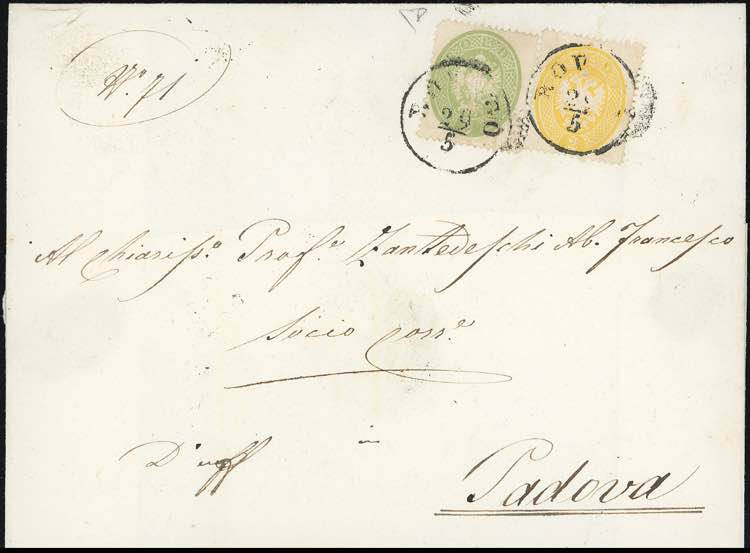 N.o 71
ROVIGO
29/5
ROVI
5
Al Chiariss.o Prof.e Zantedeschi Ab. Francesco
Socio Corr.e
D'uff
in
Padova